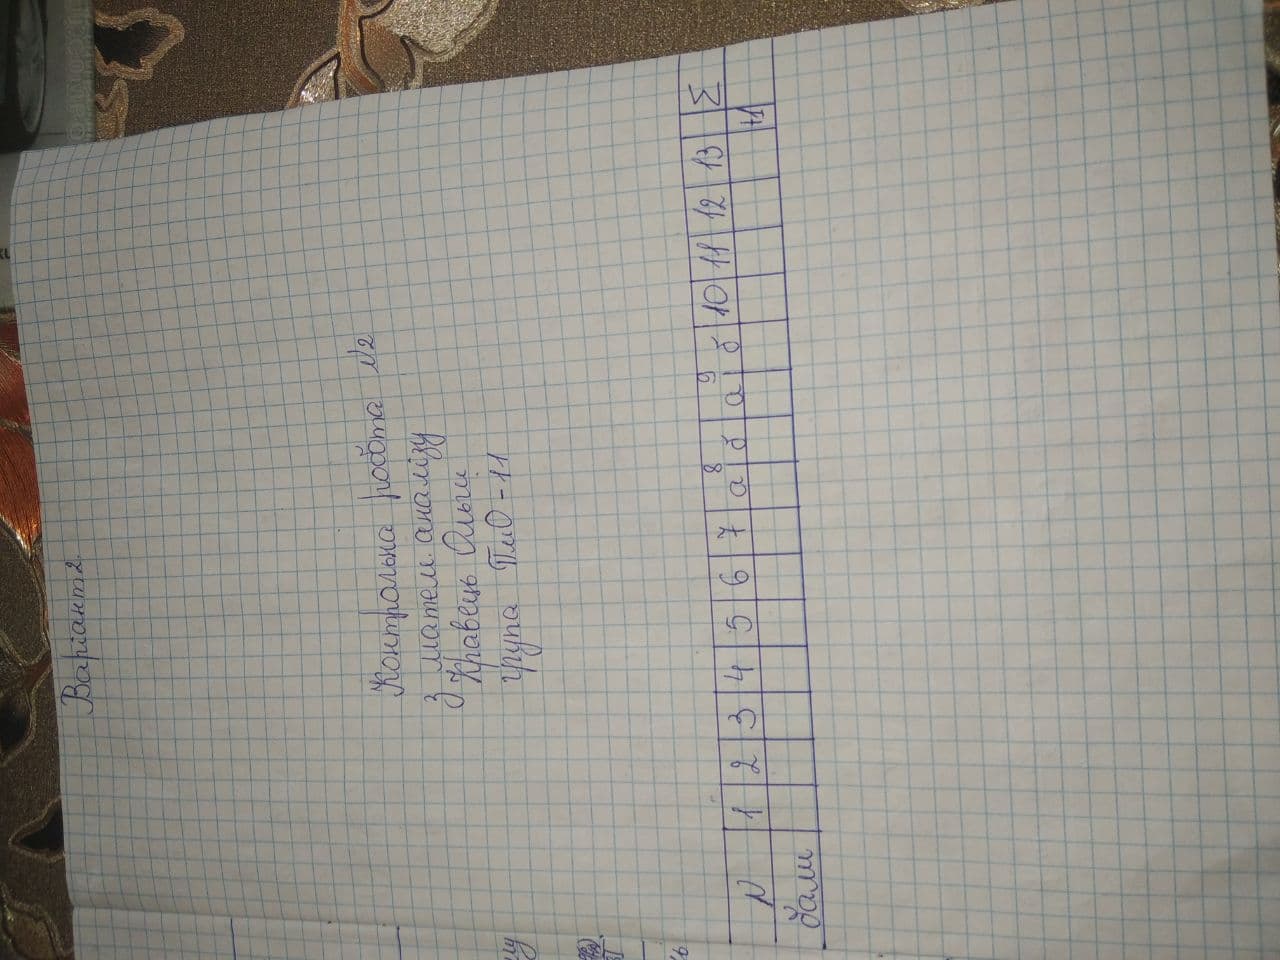 Варіант 2.
Контрольна робота №2
з матем. аналізу
Кравець Ольги
група ПмО-11
N 1 2 3 4 5 6 7 8 а б 9 а б 10 11 12 13 Σ
бали +1